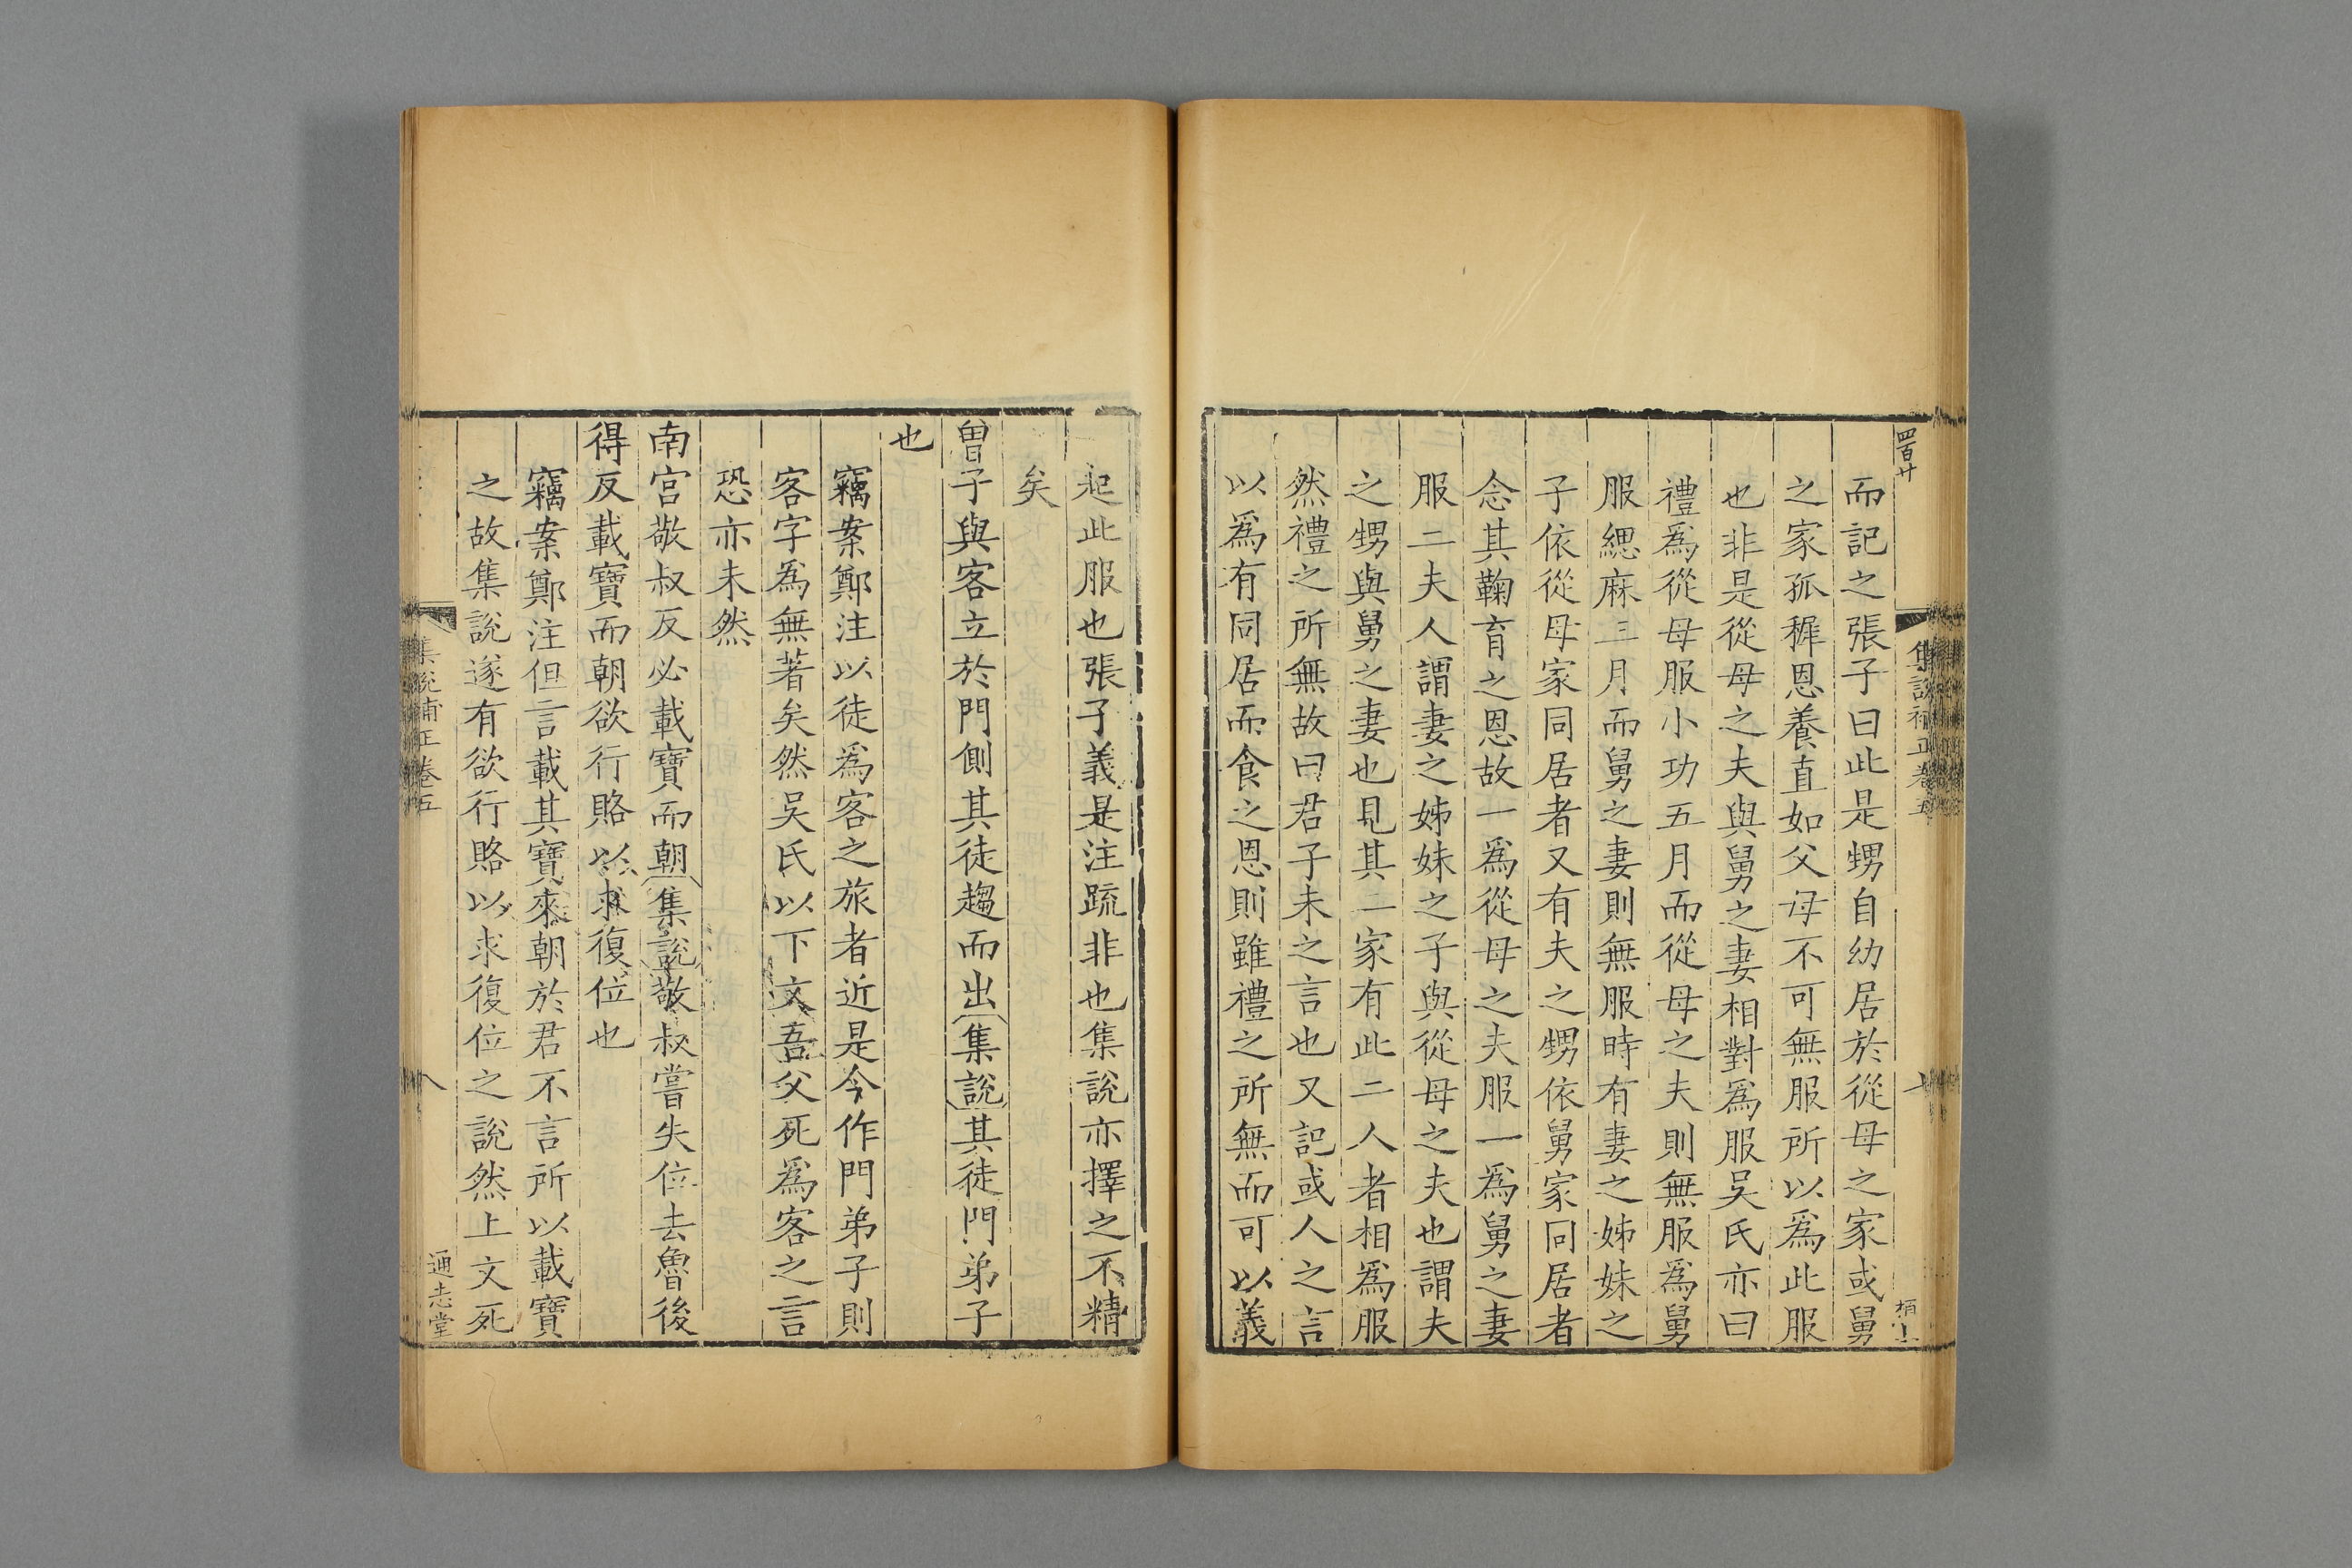 四百廿
集說補正卷五
而記之張子曰此是甥自幼居於從母之家或舅
之家孤穉恩養直如父母不可無服所以爲此服
也非是從母之夫與舅之妻相對爲服吳氏亦曰
禮爲從母服小功五月而從母之夫則無服爲舅
服緦麻三月而舅之妻則無服時有妻之姊妹之
子依從母家同居者又有夫之甥依舅家同居者
念其鞠育之恩故一爲從母之夫服一爲舅之妻
服二夫人謂妻之姊妹之子與從母之夫也謂夫
之甥與舅之妻也見其二家有此二人者相爲服
然禮之所無故曰君子未之言也又記或人之言
以爲有同居而食之恩則雖禮之所無而可以義
起此服也張子義是注疏非也集說亦擇之不精
矣
曾子與客立於門側其徒趨而出集說其徒門弟子
也
竊案鄭注以徒爲客之旅者近是今作門弟子則
客字爲無著矣然吳氏以下文吾父死爲客之言
恐亦未然
南宮敬叔反必載寶而朝集說敬叔嘗失位去魯後
得反載寶而朝欲行賂以求復位也
竊案鄭注但言載其寶來朝於君不言所以載寶
之故集說遂有欲行賂以求復位之說然上文死
集說補正卷五
八
通志堂